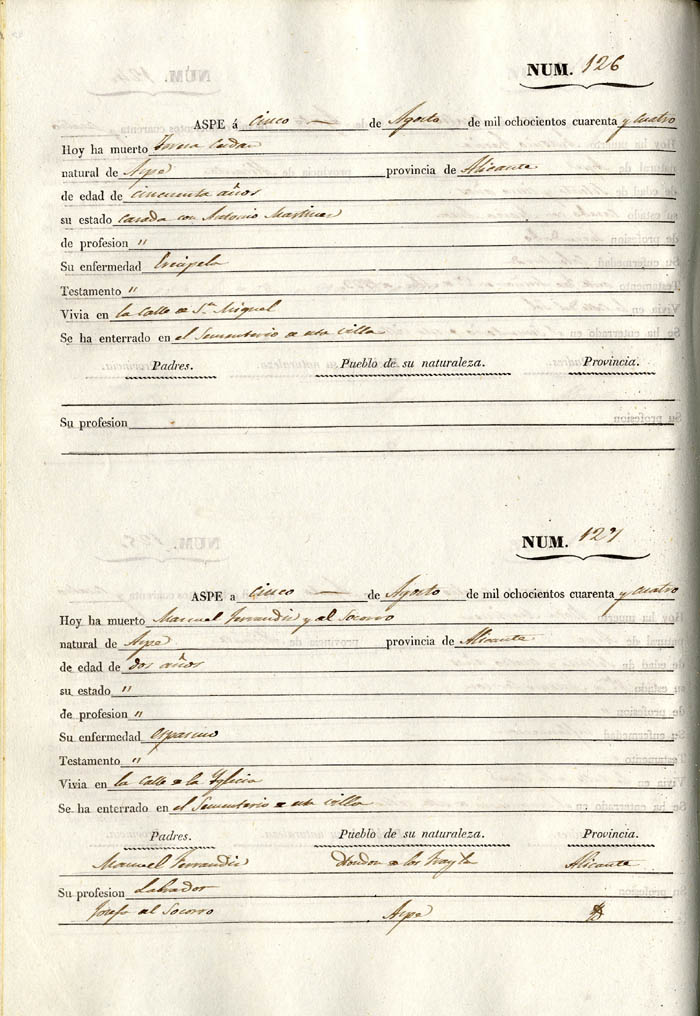 NUM. 126
ASPE á cinco — de Agosto de mil ochocientos cuarenta y cuatro
Hoy ha muerto Teresa
natural de Aspe provincia de Alicante
de edad de cincuenta años
su estado casada con Antonio Martinez
de profesion "
Su enfermedad Ericipela
Testamento "
Vivia en la Calle de Sn. Miguel
Se ha enterrado en el Sementerio de esta villa
Padres. Pueblo de su naturaleza. Provincia.
Su profesion
NUM. 127
ASPE a cinco — de Agosto de mil ochocientos cuarenta y cuatro
Hoy ha muerto Manuel Ferrandis y del Socorro
natural de Aspe provincia de Alicante
de edad de dos años
su estado "
de profesion "
Su enfermedad
Testamento "
Vivia en la Calle de la Yglecia
Se ha enterrado en el Sementerio de esta villa
Padres. Pueblo de su naturaleza. Provincia.
Manuel Ferrandis de los Frayles Alicante
Su profesion Labrador
Josefa del Socorro Aspe